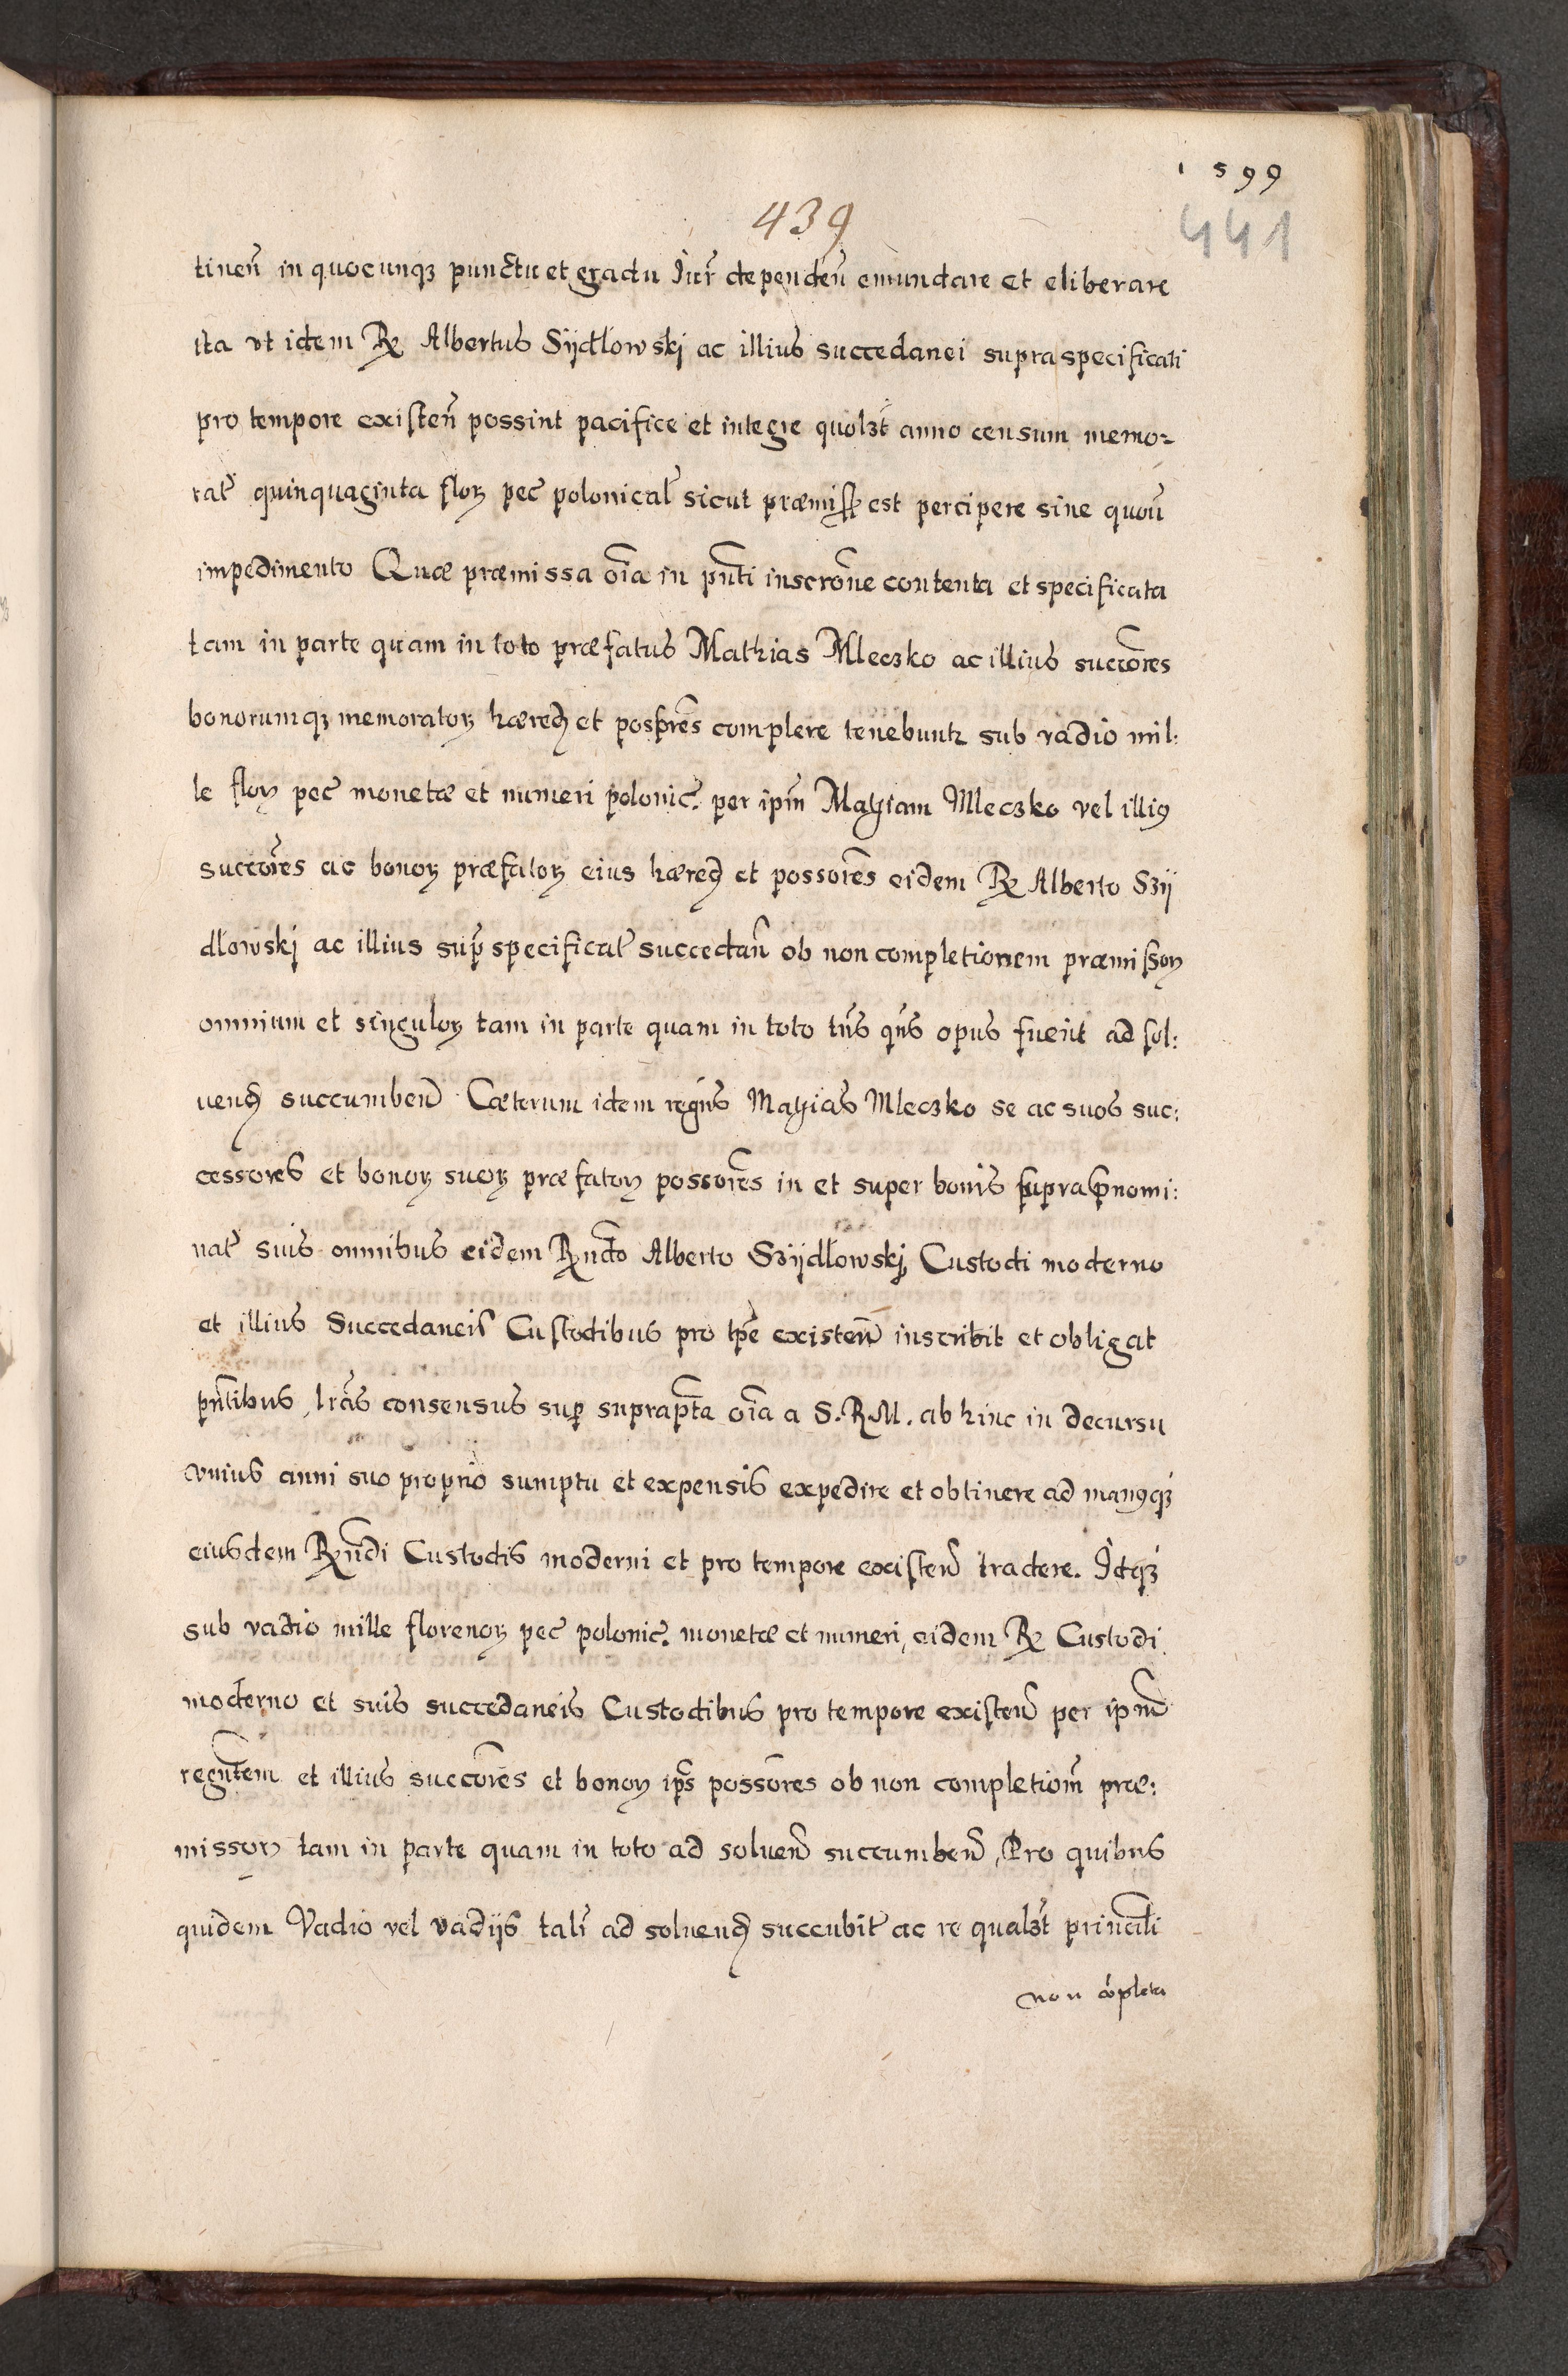 1599
439
441
tineñ in quocunqꝫ punctu et gradu Jur̃ dependeñ emundare et eliberare
ita vt idem Rᷓ Albertus Sÿdlowskj ac illius succedanei supraspecificati
pro tempore existeñ possint pacifice et integre quolꝫt anno censum memo-
rat̃ quinquaginta floꝝ pec̃ polonical̃ sicut præmiss̃ est percipere sine quoũ
impedimento Quæ præmissa oĩa in pñti inscrõne contenta et specificata
tam in parte quam in toto præfatus Mathias Mleczko ac illius succõres
bonorumqꝫ memoratoꝝ hæred̃ et possõres complere tenebuntꝛ sub vadio mil:
le floꝝ pec̃ monetæ et numeri polonic̃. per ipm̃ Mathiam Mleczko vel illiꝯ
succõres ac bonoꝝ præfatoꝝ eius hæred̃ et possõres eidem Rᷓ Alberto Szÿ
dlowskj ac illius sup̃specificat̃ succedañ ob non completionem præmissoꝝ
omnium et singuloꝝ tam in parte quam in toto tñs qñs opus fuerit ad sol:
uend̃ succumbeñ Cæterum idem regñs Mathias Mleczko se ac suos suc:
cessores et bonoꝝ suoꝝ præfatoꝝ possõres in et super bonis supraspnomi:
nat̃ suis omnibus eidem Rñdo Alberto Szÿdlowskj, Custodi moderno
et illius Succedaneis Custodibus pro tp̃e existeñ inscribit et obligat
pñtibus, lr̃as consensus sup̱ suprap̃ta oĩa a S.R.M. ab hinc in decursu
vnius anni suo proprio sumptu et expensis expedire et obtinere ad manꝯqꝫ
eiusdem Rñdi Custodis moderni et pro tempore existeñ tradere. Jdqꝫ
sub vadio mille florenoꝝ pec̃ polonic̃. monetæ et numeri, eidem Rᷓ Custodi
moderno et suis succedaneis Custodibus pro tempore existeñ per ipm̃
regñtem et illius succõres et bonoꝝ ip̃s possõres ob non completiom̃ præ:
missoꝝ tam in parte quam in toto ad soluend̃ succumbeñ, Pro quibus
quidem Vadio vel vadijs tali ad soluend̃ succubit̃ ac re qualꝫt princili
non cõpleta